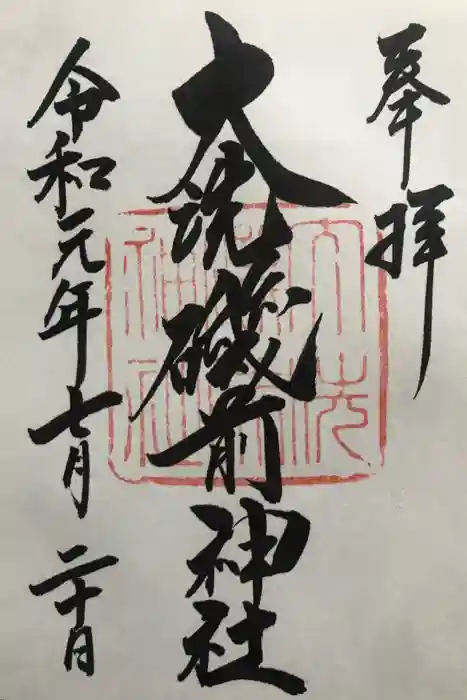 奉拝
大洗磯前神社
令和元年七月二十日